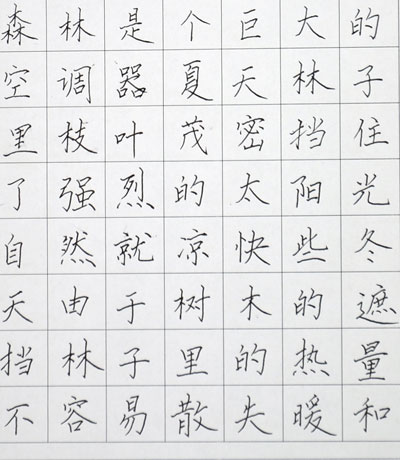 森林是个巨大的
空调器夏天林子
里枝叶茂密挡住
了强烈的太阳光
自然就凉快些冬
天由于树木的遮
挡林子里的热量
不容易散失暖和